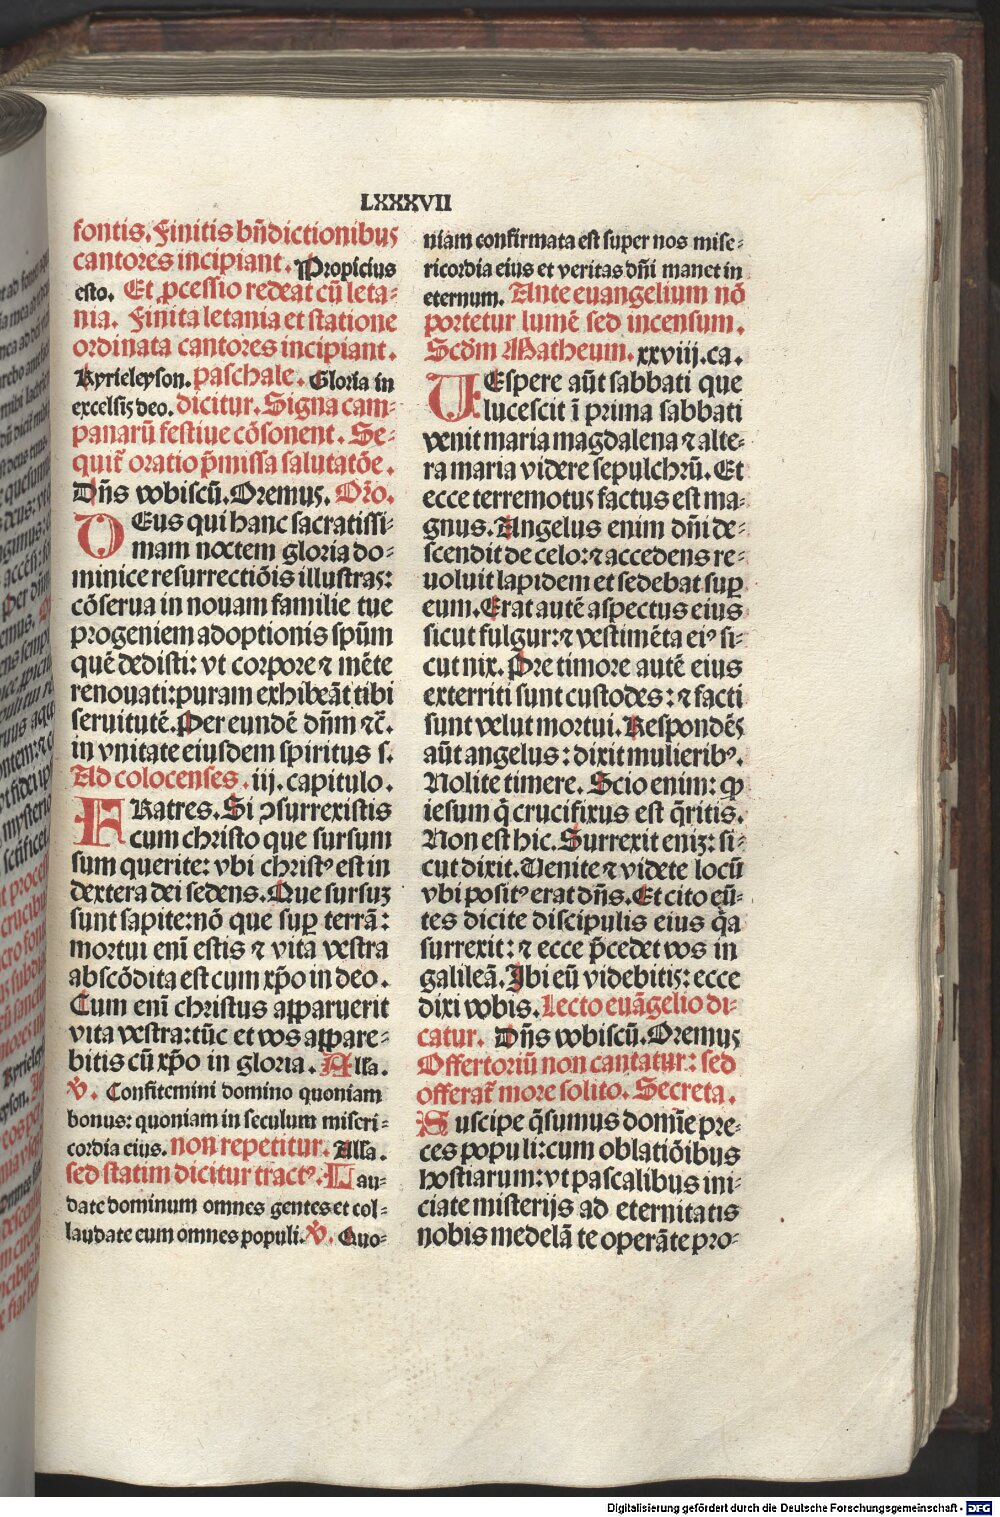 LXXXVII
fontis. Finitis bn̄dictionibus
cantores incipiant. Propicius
esto. Et ꝓcessio redeat cū leta⸗
nia. Finita letania et statione
ordinata cantores incipiant.
Kyrieleyson. paschale. Gloria in
excelsis deo. dicitur. Signa cam⸗
panarū festiue cōsonent. Se⸗
quit̄ oratio p̄missa salutatōe.
Dn̄s vobiscū. Oremus. Or̄o.
DEus qui hanc sacratissi⸗
mam noctem gloria do⸗
minice resurrectiōis illustras:
cōserua in nouam familie tue
progeniem adoptionis spūm
quē dedisti: vt corpore ⁊ mēte
renouati: puram exhibeāt tibi
seruitutē. Per eundē dn̄m ⁊c̄.
in vnitate eiusdem spiritus s.
Ad colocenses. iij. capitulo.
FRatres. Si ꝯsurrexistis
cum christo que sursum
sum querite: vbi christꝰ est in
dextera dei sedens. Que sursuꝫ
sunt sapite: nō que suꝑ terrā:
mortui enī estis ⁊ vita vestra
abscōdita est cum xp̄o in deo.
Cum enī christus apparuerit
vita vestra: tūc et vos appare⸗
bitis cū xp̄o in gloria. Alla.
℣. Confitemini domino quoniam
bonus: quoniam in seculum miseri⸗
cordia eius. non repetitur. Alla.
sed statim dicitur tractꝰ. Lau⸗
date dominum omnes gentes et col⸗
laudate eum omnes populi. ℣. Quo⸗
niam confirmata est super nos mise⸗
ricordia eius et veritas dn̄i manet in
eternum. Ante euangelium nō
portetur lumē sed incensum.
Scd̄m Matheum. xxviij. ca.
VEspere aūt sabbati que
lucescit ī prima sabbati
venit maria magdalena ⁊ alte⸗
ra maria videre sepulchrū. Et
ecce terremotus factus est ma⸗
gnus. Angelus enim dn̄i de⸗
scendit de celo: ⁊ accedens re⸗
uoluit lapidem et sedebat suꝑ
eum. Erat autē aspectus eius
sicut fulgur: ⁊ vestimēta eiꝰ si⸗
cut nix. Pre timore autē eius
exterriti sunt custodes: ⁊ facti
sunt velut mortui. Respondēs
aūt angelus: dixit mulieribꝰ.
Nolite timere. Scio enim: ꝙ
iesum q̄ crucifixus est q̄ritis.
Non est hic. Surrexit eniꝫ: si⸗
cut dixit. Uenite ⁊ videte locū
vbi positꝰ erat dn̄s. Et cito eū⸗
tes dicite discipulis eius q̄a
surrexit: ⁊ ecce p̄cedet vos in
galileā. Ibi eū videbitis: ecce
dixi vobis. Lecto euāgelio di⸗
catur. Dn̄s vobiscū. Oremus
Offertoriū non cantatur: sed
offerat̄ more solito. Secreta.
Suscipe q̄sumus domīe pre⸗
ces populi: cum oblatiōibus
hostiarum: vt pascalibus ini⸗
ciate misterijs ad eternitatis
nobis medelā te operāte pro⸗
Digitalisierung gefördert durch die Deutsche Forschungsgemeinschaft - DFG